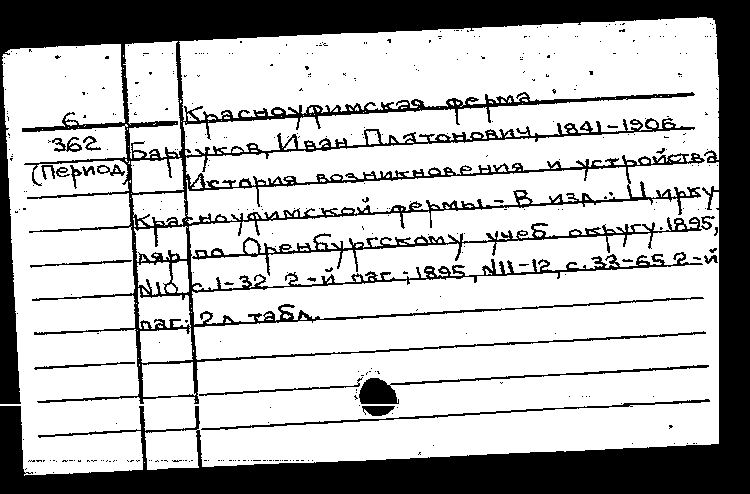 Красноуфимская ферма.
6.
362
(Период)
Барсуков, Иван Платонович, 1841-1906.
История возникновения и устройства
Красноуфимской фермы. - В изд.: Цирку-
ляр по Оренбургскому учеб. округу. 1895,
N10, с. 1-32 2-й паг.; 1895, N11-12, с. 33-65 2-й
паг.; 2 л. табл.